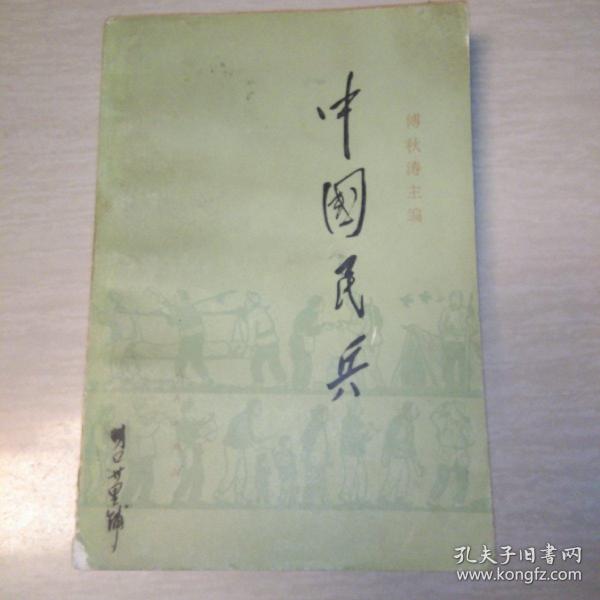 傅秋涛主编
中國民兵
孔夫子旧书网
www.kongfz.com